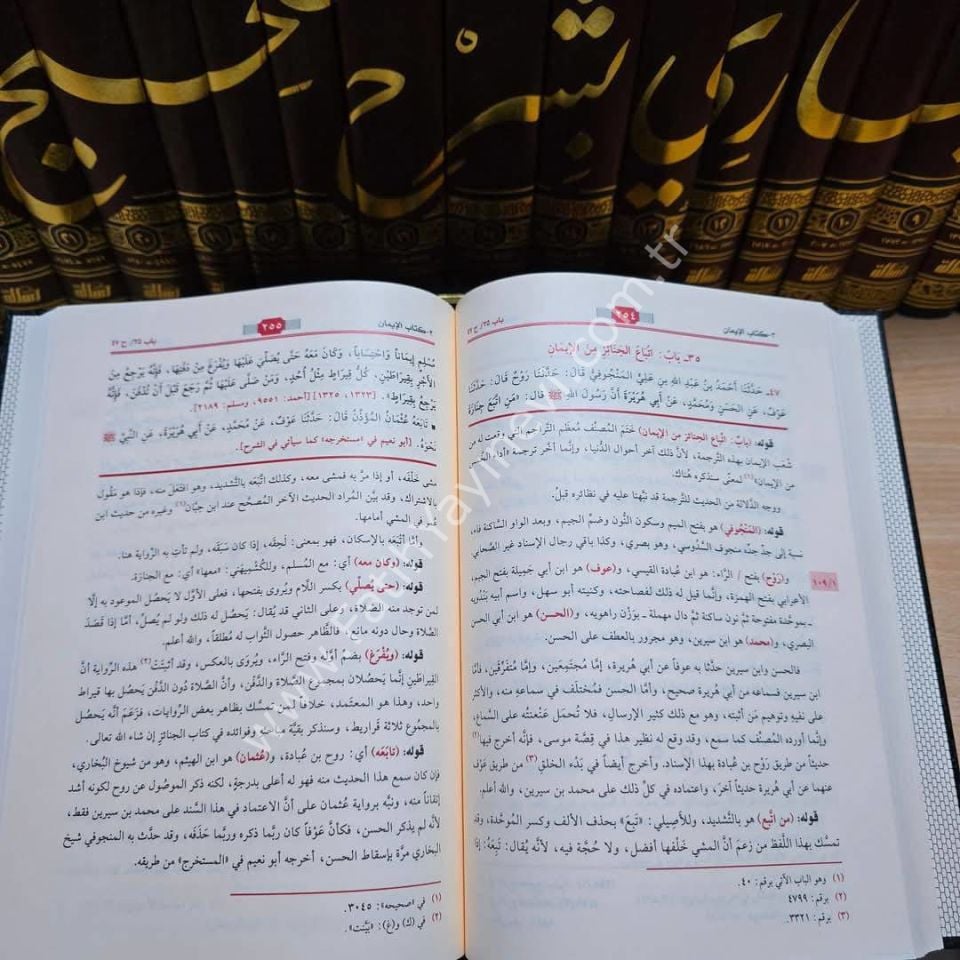 باري بشرح صحيح
٢- كتاب الإيمان
٢٥٤
باب ٣٥/ ح ٤٧
٣٥- بَابٌ: اتِّبَاعُ الجَنَائِزِ مِنَ الإِيمَانِ
٤٧- حَدَّثَنَا أَحْمَدُ بْنُ عَبْدِ اللهِ بْنِ عَلِيٍّ المَنْجُوفِيُّ قَالَ: حَدَّثَنَا رَوْحٌ قَالَ: حَدَّثَنَا
عَوْفٌ، عَنِ الحَسَنِ وَمُحَمَّدٍ، عَنْ أَبِي هُرَيْرَةَ أَنَّ رَسُولَ اللهِ ﷺ قَالَ: «مَنِ اتَّبَعَ جَنَازَةَ
قوله: (بابٌ: اتِّباع الجنائز من الإيمان) ختَمَ المصنِّف مُعظَم التَّراجم التي وقعت له من
شُعَب الإيمان بهذه الترجمة، لأنَّ ذلك آخر أحوال الدُّنيا، وإنَّما أخَّر ترجمة «أداء الخُمس
من الإيمان»(١) لمعنًى سنذكره هُناك.
ووجه الدَّلالة من الحديث للتَّرجمة قد نبَّهنا عليه في نظائره قبلُ.
قوله: (المَنْجُوفي) هو بفتح الميم وسكون النُّون وضمِّ الجيم، وبعد الواو الساكنة فاء،
نسبة إلى جدِّ جدِّه منجوف السَّدُوسي، وهو بصري، وكذا باقي رجال الإسناد غير الصَّحابي
و(رَوْح) بفتح الرَّاء: هو ابن عُبادة القيسي، و(عوف) هو ابن أبي جَميلة بفتح الجيم،
١٠٩/١
الأعرابي بفتح الهمزة، وإنَّما قيل له ذلك لفصاحته، وكنيته أبو سهل، واسم أبيه بَنْدُويه
ـ بموحَّدة مفتوحة ثمَّ نون ساكنة ثمَّ دال مهملة ـ بوَزْن راهويه، و(الحسن) هو ابن أبي الحسن
البصري، و(محمد) هو ابن سيرين، وهو مجرور بالعطف على الحسن.
فالحسن وابن سيرين حدَّثا به عوفاً عن أبي هريرة، إمَّا مُجتمِعَين، وإمَّا مُتفرِّقين، فأمَّا
ابن سيرين فسماعه من أبي هُريرة صحيح، وأمَّا الحسن فمُختلَف في سماعه منه، والأكثر
على نفيه وتوهيم مَن أثبته، وهو مع ذلك كثير الإرسال، فلا تُحمَل عَنعنتُه على السَّماع،
وإنَّما أورده المصنِّف كما سمع، وقد وقع له نظير هذا في قِصَّة موسى، فإنَّه أخرج فيها(٢)
حديثاً من طريق رَوْح بن عُبادة بهذا الإسناد. وأخرج أيضاً في بَدْء الخلق(٣) من طريق عَوْف
عنهما عن أبي هُريرة حديثاً آخرَ، واعتماده في كلِّ ذلك على محمد بن سيرين، والله أعلم.
قوله: (من اتَّبع) هو بالتَّشديد، وللأَصِيلي: «تَبِعَ» بحذف الألف وكسر الموحَّدة، وقد
تمسَّك بهذا اللَّفظ من زعَمَ أنَّ المشي خَلْفَها أفضل، ولا حُجَّة فيه، لأنَّه يُقال: تَبِعَهُ: إذا
(١) وهو الباب الآتي برقم: ٤٠.
(٢) برقم: ٤٧٩٩
(٣) برقم: ٣٣٢١.
٢- كتاب الإيمان
٢٥٥
باب ٣٥/ ح ٤٧
مُسْلِمٍ إِيمَاناً وَاحْتِسَاباً، وَكَانَ مَعَهُ حَتَّى يُصَلِّيَ عَلَيْهَا وَيُفْرَغَ مِنْ دَفْنِهَا، فَإِنَّهُ يَرْجِعُ مِنَ
الأَجْرِ بِقِيرَاطَيْنِ، كُلُّ قِيرَاطٍ مِثْلُ أُحُدٍ، وَمَنْ صَلَّى عَلَيْهَا ثُمَّ رَجَعَ قَبْلَ أَنْ تُدْفَنَ، فَإِنَّهُ
يَرْجِعُ بِقِيرَاطٍ». [١٣٢٣، ١٣٢٥] [أحمد: ٩٥٥١، ومسلم: ٢١٨٩].
▪ تَابَعَهُ عُثْمَانُ المُؤَذِّنُ قَالَ: حَدَّثَنَا عَوْفٌ، عَنْ مُحَمَّدٍ، عَنْ أَبِي هُرَيْرَةَ، عَنِ النَّبِيِّ ﷺ
نَحْوَهُ. [أبو نعيم في «مستخرجه» كما سيأتي في الشرح].
مشى خَلْفَه، أو إذا مرَّ به فمشى معه، وكذلك اتَّبَعَه بالتَّشديد، وهو افتَعَل منه، فإذاً هو مَقُول
بالاشتراك، وقد بيَّن المراد الحديث الآخر المصحَّح عند ابن حِبَّان(١) وغيره من حديث ابن
عُمر في المشي أمامها.
وأمَّا أتْبَعَه بالإسكان، فهو بمعنى: لَحِقَه، إذا كان سَبَقَه، ولم تأتِ به الرِّواية هنا.
قوله: (وكان معه) أي: مع المُسلم، وللكُشمِيهَني: «معها» أي: مع الجنازة.
قوله: (حتى يُصلِّي) بكسر اللَّام ويُروى بفتحها، فعلى الأوَّل لا يَحصُل الموعود به إلَّا
لمن توجد منه الصَّلاة، وعلى الثاني قد يُقال: يَحصُل له ذلك ولو لم يُصلِّ، أمَّا إذا قصَدَ
الصَّلاة وحال دونه مانع، فالظَّاهر حصول الثَّواب له مُطلقاً، والله أعلم.
قوله: (ويُفْرَغ) بضمِّ أوَّله وفتح الرَّاء، ويُروَى بالعكس، وقد أثبتَتْ(٢) هذه الرِّواية أنَّ
القِيراطَين إنَّما يَحصُلان بمجموع الصَّلاة والدَّفن، وأنَّ الصَّلاة دُون الدَّفن يَحصُل بها قيراط
واحد، وهذا هو المعتمَد، خلافاً لمن تمسَّك بظاهر بعض الرِّوايات، فزَعَمَ أنَّه يَحصُل
بالمجموع ثلاثة قراريط، وسنذكر بقيَّة مباحثه وفوائده في كتاب الجنائز إن شاء الله تعالى.
قوله: (تابَعَه) أي: روح بن عُبادة، و(عُثمان) هو ابن الهيثم، وهو من شيوخ البُخاري،
فإن كان سمع هذا الحديث منه فهو له أعلى بدرجةٍ، لكنه ذكر الموصُول عن روح لكونه أشد
إتقاناً منه، ونبَّه برواية عُثمان على أنَّ الاعتماد في هذا السَّند على محمد بن سيرين فقط،
لأنَّه لم يذكر الحسن، فكأنَّ عَوْفاً كان ربما ذكره وربَّما حَذَفه، وقد حدَّث به المنجوفي شيخ
البخاري مرَّة بإسقاط الحسن، أخرجه أبو نعيم في «المستخرج» من طريقه.
(١) في «صحيحه»: ٣٠٤٥.
(٢) في (ك) و(غ): «بَيَّنت».
www.FatihYayinevi.com.tr